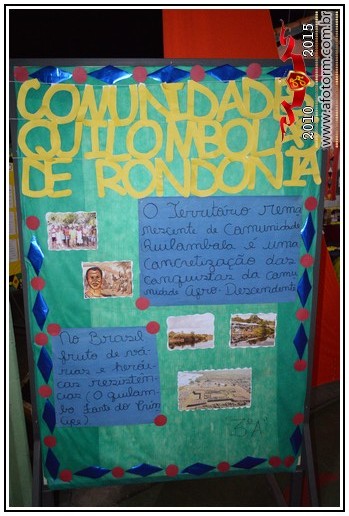 COMUNIDADE
QUILOMBOLAS
DE RONDONIA
O Território rema
nescente de Comunidade
Quilambala é uma
concretização das
conquistas da comu
nidade Afro. Descendente
No Brasil
fruto de vá
rias e herói
cas resistên
cias (O quilam
bo Forte do Prín
cipe)
2º A
2010 2015
www.afotorm.com.br